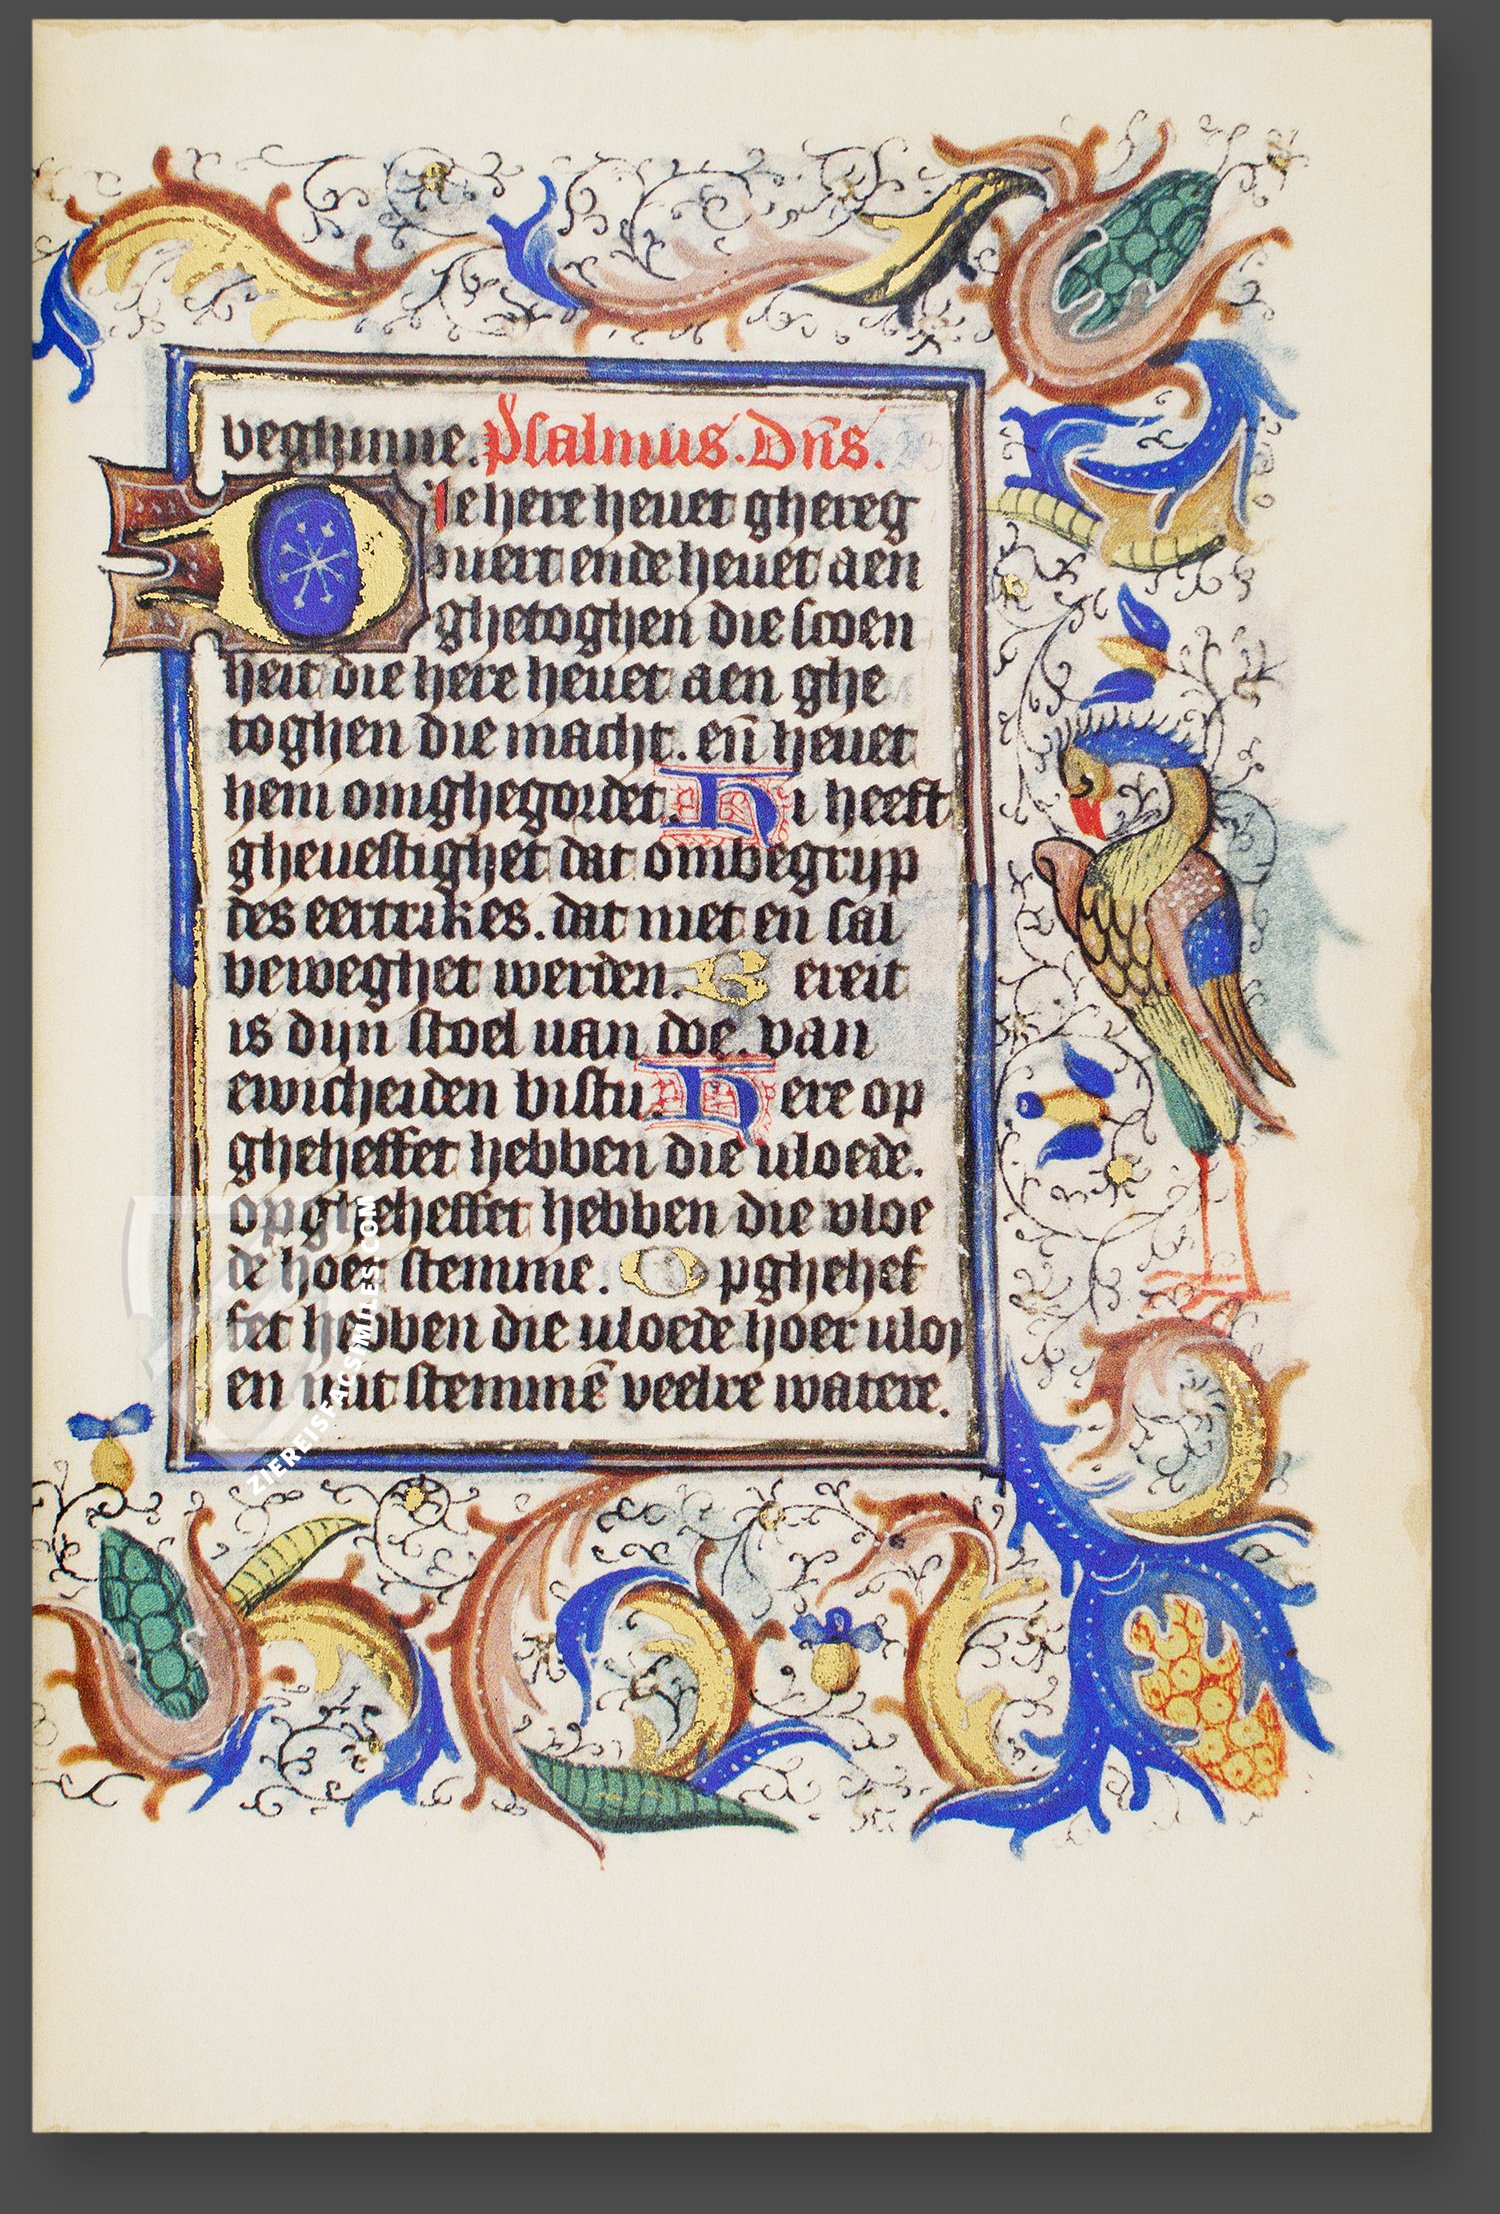 beghinne. Psalmus. Dn̄s.
Die here heuet ghereg
niert ende heuet aen
ghetoghen die scoen
heit die here heuet aen ghe
toghen die macht. en̄ heuet
hem omghegordet. Hi heeft
gheuestighet dat ombegrijp
des eertrikes. dat niet en sal
beweghet werden. Bereit
is dijn stoel uan doe. van
ewicheiden bistu. Here op
gheheffet hebben die uloede.
opgheheffet hebben die vloe
de hoer stemme. Opghehef
fet hebben die uloede hoer uloy
en uut stemmē veelre watere.
ZIEREISFACSIMILES.COM